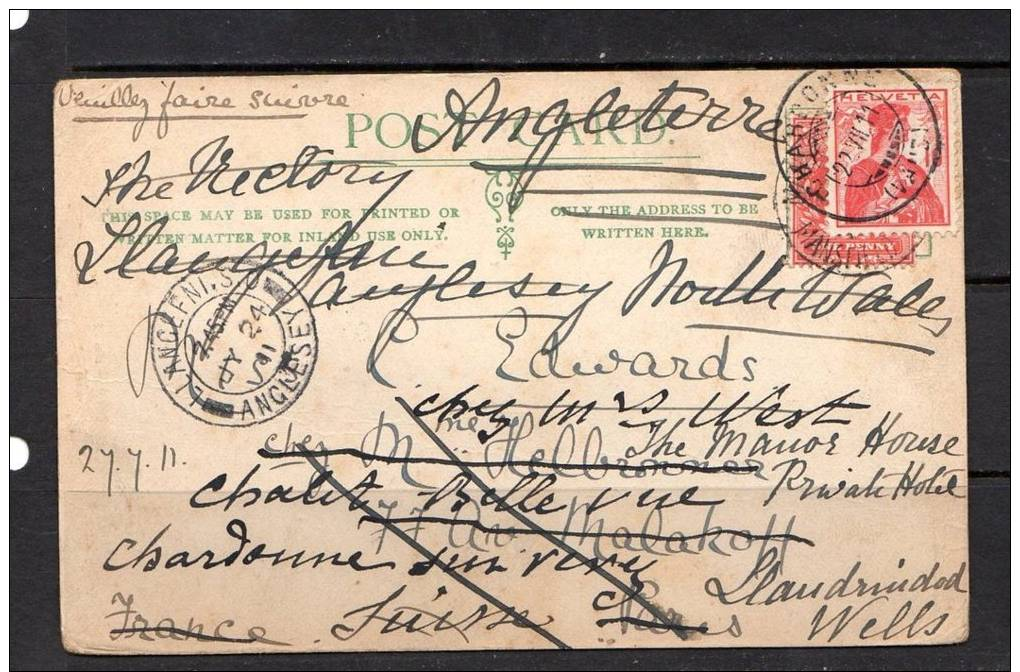 Veuillez faire suivre
Angleterre
POST CARD.
HELVETIA
The Rectory
THIS SPACE MAY BE USED FOR PRINTED OR
WRITTEN MATTER FOR INLAND USE ONLY.
ONLY THE ADDRESS TO BE
WRITTEN HERE.
ONE PENNY
CHARDONNE
22 VII 11
Llangefni
Anglesey North Wales
LLANGEFNI. S.O
ANGLESEY
JY 24
11
Edwards
chez Mrs West
27.7.11.
chez Mme Helbronner
The Manor House
Private Hotel
Chalet Belle vue
77 Av Malakoff
Chardonne sur Vevey
Llandrindod
Wells
France
Suisse
Paris